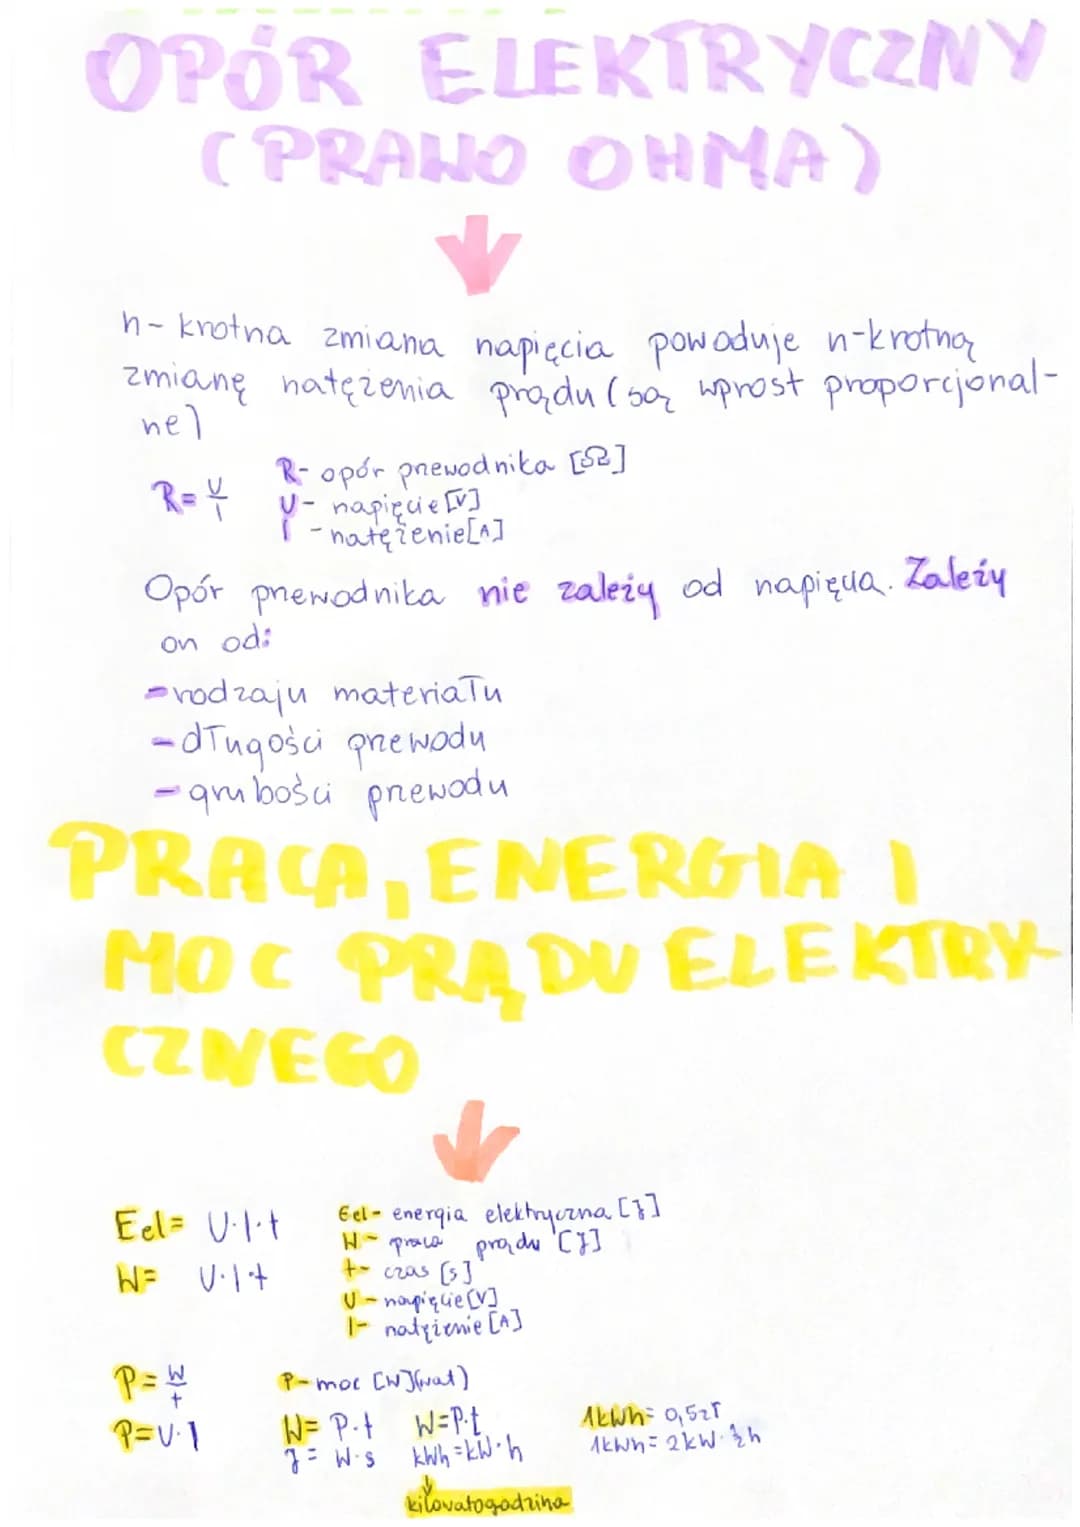 OPÓR ELEKTRYCZNY
(PRAWO OHMA)
n-krotna zmiana napięcia powoduje n-krotną
zmianę natężenia prądu (są wprost proporcjonal-
ne)
R = U/I
R - opór przewodnika [Ω]
U - napięcie [V]
I - natężenie [A]
Opór przewodnika nie zależy od napięcia. Zależy
on od:
- rodzaju materiału
- długości przewodu
- grubości przewodu
PRACA, ENERGIA I
MOC PRĄDU ELEKTRY
CZNEGO
Eel = U·I·t
W = U·I·t
Eel - energia elektryczna [J]
W - praca prądu [J]
t - czas [s]
U - napięcie [V]
I - natężenie [A]
P = W/t
P = U·I
P - moc [W] (wat)
W = P·t W = P·t
J = W·s kWh = kW·h
kilowatogodzina
1kWh = 0,5zł
1kWh = 2kW·½h